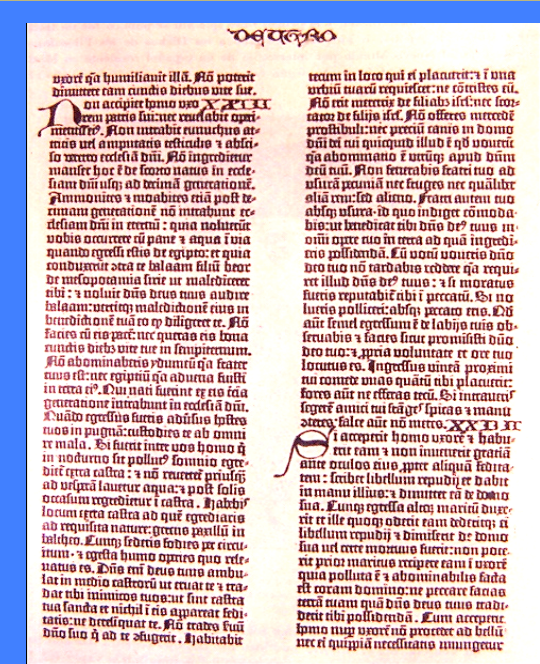 uxorē q̄a humiliauit illā. Nō poterit
dimittere eam cunctis diebus vite sue.
Non accipiet homo uxo XXIII
rem patris sui: nec reuelabit operi
Non intrabit eunuchus at-
tritis vel amputatis testiculis ⁊ absci-
so veretro ecclesiā dn̄i. Nō ingredietur
manser hoc ē de scorto natus in eccle-
siam dn̄i usq; ad decimā generationē.
Ammonites ⁊ moabites etiā post de-
cimam generationē nō intrabunt ec-
clesiam dn̄i in eternū: quia noluerūt
vobis occurrere cū pane ⁊ aqua ī via
quando egressi estis de egipto: et quia
cōtra te balaam filiū beor
de mesopotamia sirie ut malediceret
tibi: ⁊ noluit dn̄s deus tuus audire
balaam: vertitq; maledictionē eius in
benedictionē tuā eo diligeret te. Nō
facies cū eis pacē: nec queras eis bona
cunctis diebz vite tue in sempiternum.
Nō abominaberis ydumeū q̄a frater
tuus est: nec egiptiū q̄a aduena fuisti
in terra ei⁹. Qui nati fuerint ex eis
generatione intrabunt in ecclesiā dn̄i.
Quādo egressus fueris aduersus hostes
tuos in pugnā: custodies te ab omni
re mala. Si fuerit inter vos homo q̄
in nocturno sit pollut⁹ somnio egre-
diet̄ extra castra: ⁊ nō reuertet̄ priusq̄
ad vesperā lauetur aqua: ⁊ post solis
occasum regredietur ī castra. Habebis
locum extra castra ad quē egrediaris
ad requisita nature: gerens paxillū in
baltheo. Cunq; sederis fodies per circu-
itum: ⁊ egesta humo operies quo rele-
uatus es. Dn̄s eni deus tuus ambu-
lat in medio castrorū ut eruat te ⁊ tra-
dat tibi inimicos tuos: ut sint castra
tua sancta et nichil ī eis appareat fedi-
tatis: ne derelinquat te. Nō trades seruū
dn̄o suo q̄ ad te cōfugerit. Habitabit
tecum in loco qui ei placuerit: ⁊ ī una
urbiū tuarū requiescet: ne cōtristes eū.
Nō erit meretrix de filiabz isrl: nec scor-
tator de filijs isrl. Nō offeres mercedē
prostibuli: nec preciū canis in domo
dn̄i dei tui quicquid illud ē qd̄ voueris
q̄a abominatio ē utrūq; apud dn̄m
deū tuū. Non fenerabis fratri tuo ad
usurā pecuniā nec fruges nec quālibet
aliā rem: sed alieno. Fratri autem tuo
absq; usura id quo indiget cōmoda-
bis: ut benedicat tibi dn̄s de⁹ tuus in
omī opere tuo in terra ad quā ingredi-
eris possidendā. Cū votū voueris dn̄o
deo tuo nō tardabis reddere q̄a requi-
ret illud dn̄s de⁹ tuus: ⁊ si moratus
fueris reputabit̄ tibi ī peccatū. Si no-
lueris polliceri: absq; peccato eris. Qd̄
aut̄ semel egressum ē de labijs tuis ob-
seruabis ⁊ facies sicut promisisti dn̄o
deo tuo: ⁊ ꝓpria voluntate et ore tuo
locutus es. Ingressus vineā proximi
tui comede uuas quātū tibi placuerit:
foras aut̄ ne efferas tecū. Si intraueris
segetē amici tui frāges spicas ⁊ manu
cōteres: falce aut̄ nō metes. XXIIII
Si acceperit homo uxorē ⁊ habu-
erit eam ⁊ non inuenerit gratiā
ante oculos eius ꝓpter aliquā fedita-
tem: scribet libellum repudij et dabit
in manu illius: ⁊ dimittet eā de domo
sua. Cunq; egressa alterū maritū duxe-
rit et ille quoq; oderit eam dederitq; ei
libellum repudij ⁊ dimiserit de domo
sua vel certe mortuus fuerit: non pote-
rit prior maritus recipere eam ī uxorē
quia polluta ē ⁊ abominabilis facta
est coram domino: ne peccare facias
terrā tuam quā dn̄s deus tuus tradi-
derit tibi possidendā. Cum acceperit
homo nup uxorē nō procedet ad bellū
nec ei quippiā necessitatis iniungetur